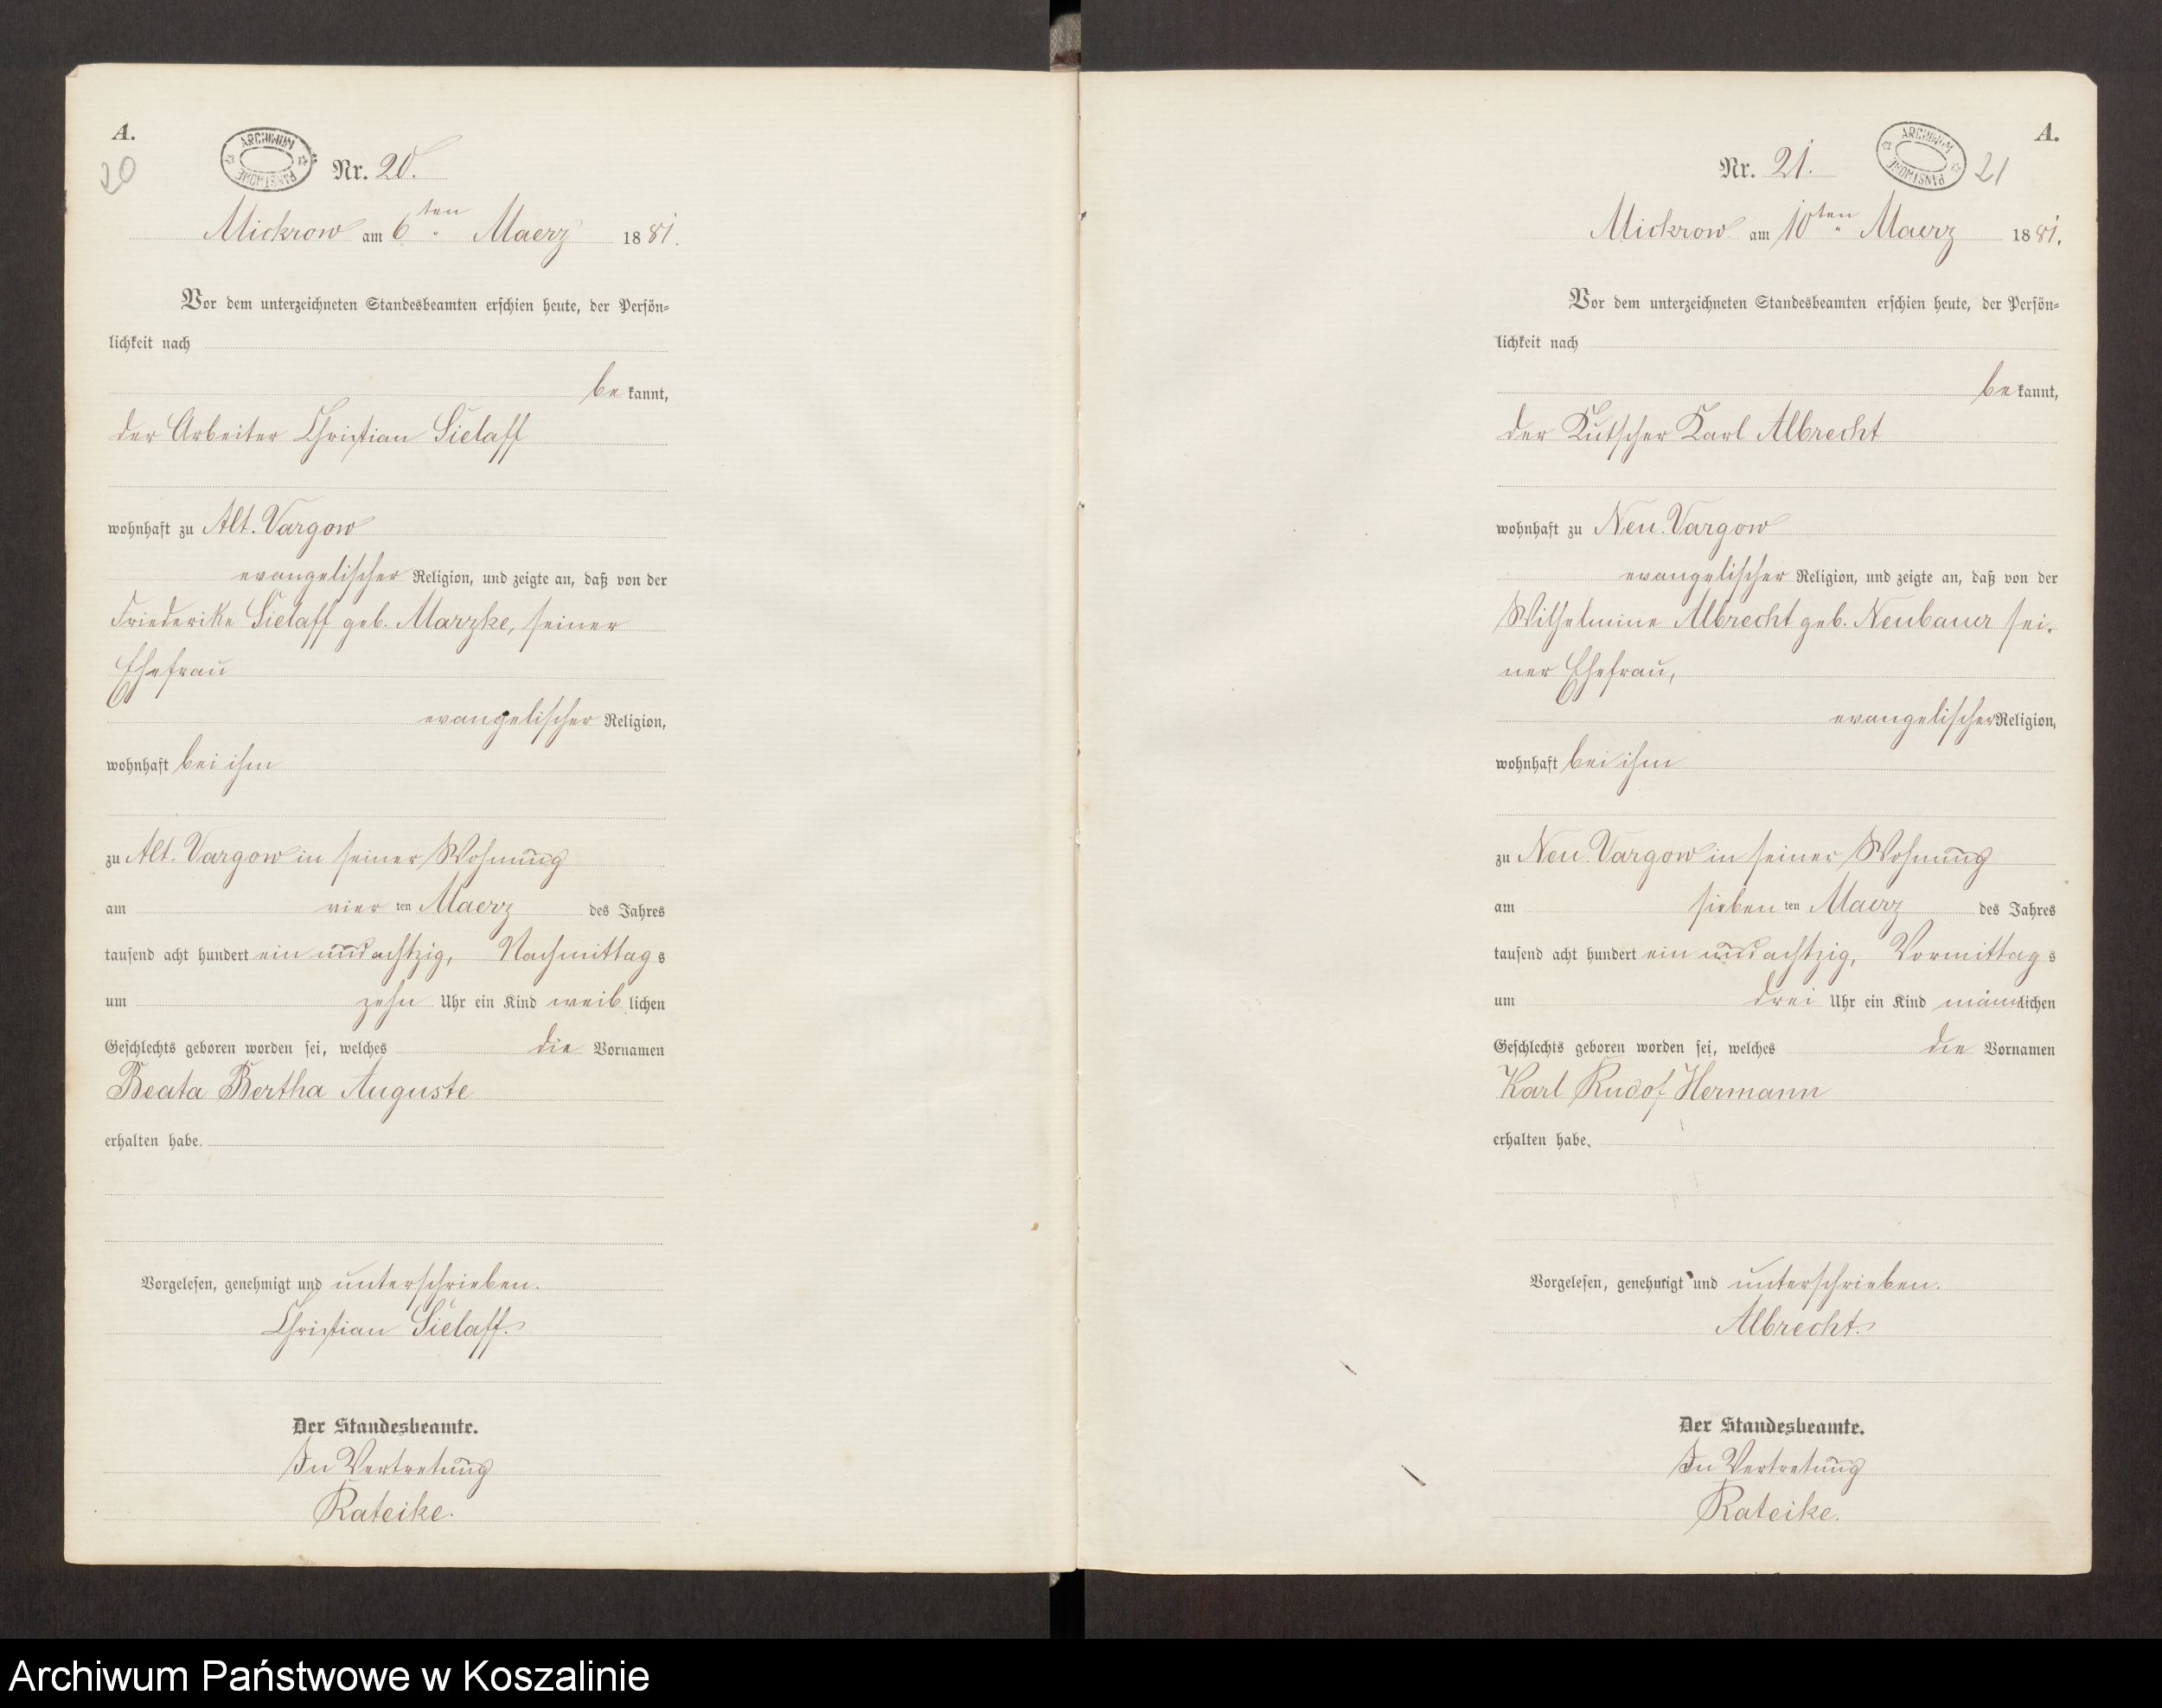 A.
20
ARCHIWUM
PAŃSTWOWE
Nr. 20.
Mickrow am 6ten Maerz 1881.
Vor dem unterzeichneten Standesbeamten erschien heute, der Persön-
lichkeit nach
bekannt,
der Arbeiter Christian Sielaff
wohnhaft zu Alt. Vargow
evangelischer Religion, und zeigte an, daß von der
Friederike Sielaff geb. Marzke, seiner
Ehefrau
evangelischer Religion,
wohnhaft bei ihm
zu Alt. Vargow in seiner Wohnung
am vierten Maerz des Jahres
tausend acht hundert ein und achtzig, Nachmittags
um zehn Uhr ein Kind weiblichen
Geschlechts geboren worden sei, welches die Vornamen
Beata Bertha Auguste
erhalten habe.
Vorgelesen, genehmigt und unterschrieben.
Christian Sielaff.
Der Standesbeamte.
In Vertretung
Rateike.
A.
21
ARCHIWUM
PAŃSTWOWE
Nr. 21.
Mickrow am 10ten Maerz 1881.
Vor dem unterzeichneten Standesbeamten erschien heute, der Persön-
lichkeit nach
bekannt,
der Kutscher Karl Albrecht
wohnhaft zu Neu. Vargow
evangelischer Religion, und zeigte an, daß von der
Wilhelmine Albrecht geb. Neubauer sei-
ner Ehefrau,
evangelischer Religion,
wohnhaft bei ihm
zu Neu. Vargow in seiner Wohnung
am siebenten Maerz des Jahres
tausend acht hundert ein und achtzig, Vormittags
um drei Uhr ein Kind männlichen
Geschlechts geboren worden sei, welches die Vornamen
Karl Rudof Hermann
erhalten habe.
Vorgelesen, genehmigt und unterschrieben.
Albrecht.
Der Standesbeamte.
In Vertretung
Rateike.
Archiwum Państwowe w Koszalinie